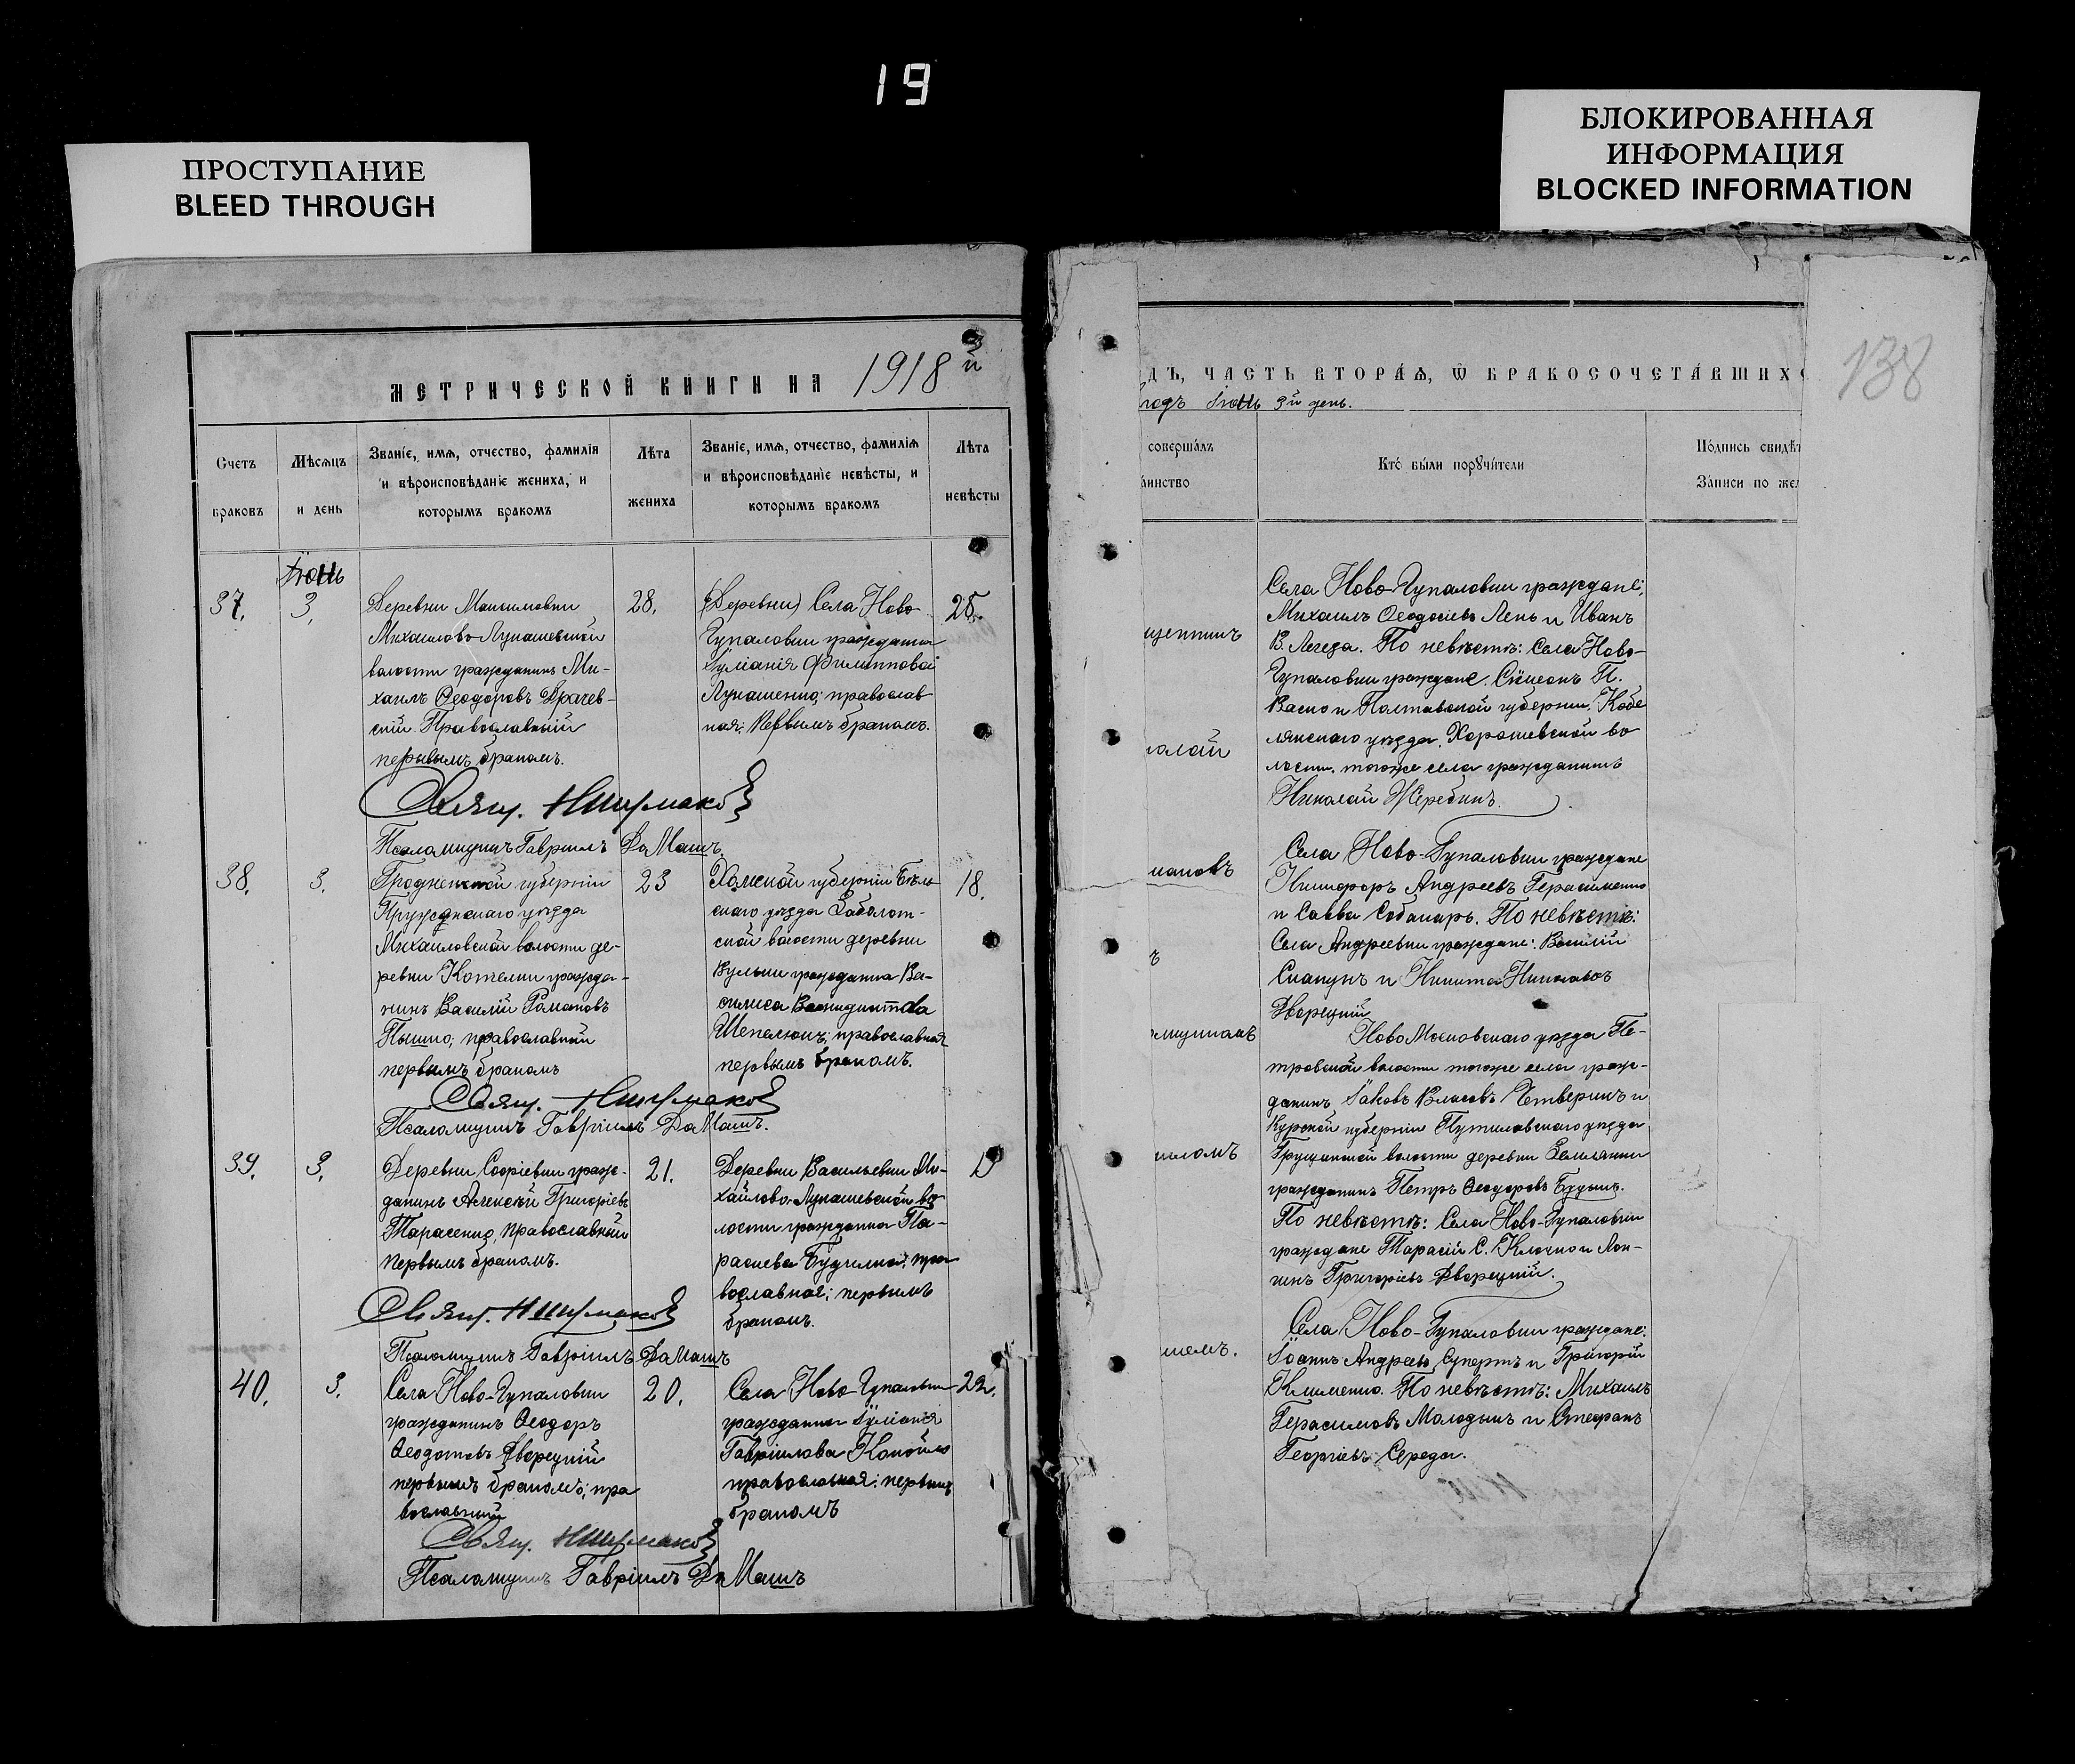 19
ПРОСТУПАНИЕ
BLEED THROUGH
БЛОКИРОВАННАЯ
ИНФОРМАЦИЯ
BLOCKED INFORMATION
МЕТРИЧЕСКОЙ КНИГИ НА 1918 й
Счетъ браковъ
Мѣсяцъ и день
Званіе, имя, отчество, фамилія
и вѣроисповѣданіе жениха, и
которымъ бракомъ
Лѣта жениха
Званіе, имя, отчество, фамилія
и вѣроисповѣданіе невѣсты, и
которымъ бракомъ
Лѣта невѣсты
Іюнь
37.
3.
Деревни Максимовки
Михайлово-Лукашевской
волости гражданинъ Ми-
хаилъ Ѳеодоровъ Драчев-
скій Православный
первымъ бракомъ.
28.
(Деревни) Села Ново
Гупаловки гражданка
Іуліанія Филиппова
Лукашенко; православ
ная; первымъ бракомъ.
25.
Свящ.
Псаломщикъ Гавріилъ ДоМашъ
38.
3.
Гродненской губерніи
Пружанскаго уѣзда
Михайловской волости де-
ревни Котелки гражда-
нинъ Василій Романовъ
Пышко; православный
первымъ бракомъ
23
Холмской губерніи Бѣль
скаго уѣзда Заболот-
ской волости деревни
Вульки гражданка Ва-
силиса
православная
первымъ бракомъ.
18.
Свящ.
Псаломщикъ Гавріилъ ДоМашъ.
39.
3.
Деревни Софіевки граж-
данинъ Алексѣй Григоріевъ
Тарасенко, православный
первымъ бракомъ.
21.
Деревни Васильевки Ми-
хайлово-Лукашевской во
лости гражданка Па-
раскева пра
вославная; первымъ
бракомъ.
19
Свящ.
Псаломщикъ Гавріилъ ДоМашъ
40.
3.
Села Ново-Гупаловки
гражданинъ Ѳеодоръ
Ѳеодотовъ Дворецкій
первымъ бракомъ; пра
вославный
20.
Села Ново-Гупаловки
гражданка Іуліанія
Гавріилова
православная; первымъ
бракомъ
22.
Свящ.
Псаломщикъ Гавріилъ ДоМашъ
138
ДЪ, ЧАСТЬ ВТОРАЯ, Ѿ БРАКОСОЧЕТАВШИХС
годъ Іюнь 3й день.
совершалъ
аинство
Кто были поручители
Подпись свидѣт
Записи по жел
Села Ново-Гупаловки граждане;
Михаилъ Ѳеодосіевъ Лень и Иванъ
В. Легеза. По невѣстѣ: Села Ново-
Гупаловки граждане Сѵмеонъ П.
Васко и Полтавской губерніи, Кобе
лякскаго уѣзда, Хорошевской во
лости, тогоже села гражданинъ
Николай Жеребинъ.
Села Ново-Гупаловки граждане
Никифоръ Андреевъ Герасименко
и Савва Собакарь. По невѣстѣ:
Села Андреевки граждане: Василій
Скапунъ и Никита
Дворецкій
Ново Московскаго уѣзда Пе-
тровской волости тогоже села граж-
данинъ Іаковъ Власовъ Четверикъ и
Курской губерніи Путивльскаго уѣзда
волости деревни
гражданинъ Петръ Ѳеодоровъ
По невѣстѣ: Села Ново-Гупаловки
граждане Тарасій С. Клочко и Лон-
гинъ Григоріевъ Дворецкій.
Села Ново-Гупаловки граждане:
Іоаннъ Андреевъ и Григорій
Клименко. По невѣстѣ: Михаилъ
Герасимовъ Молодыкъ и Стефанъ
Георгіевъ Середа.